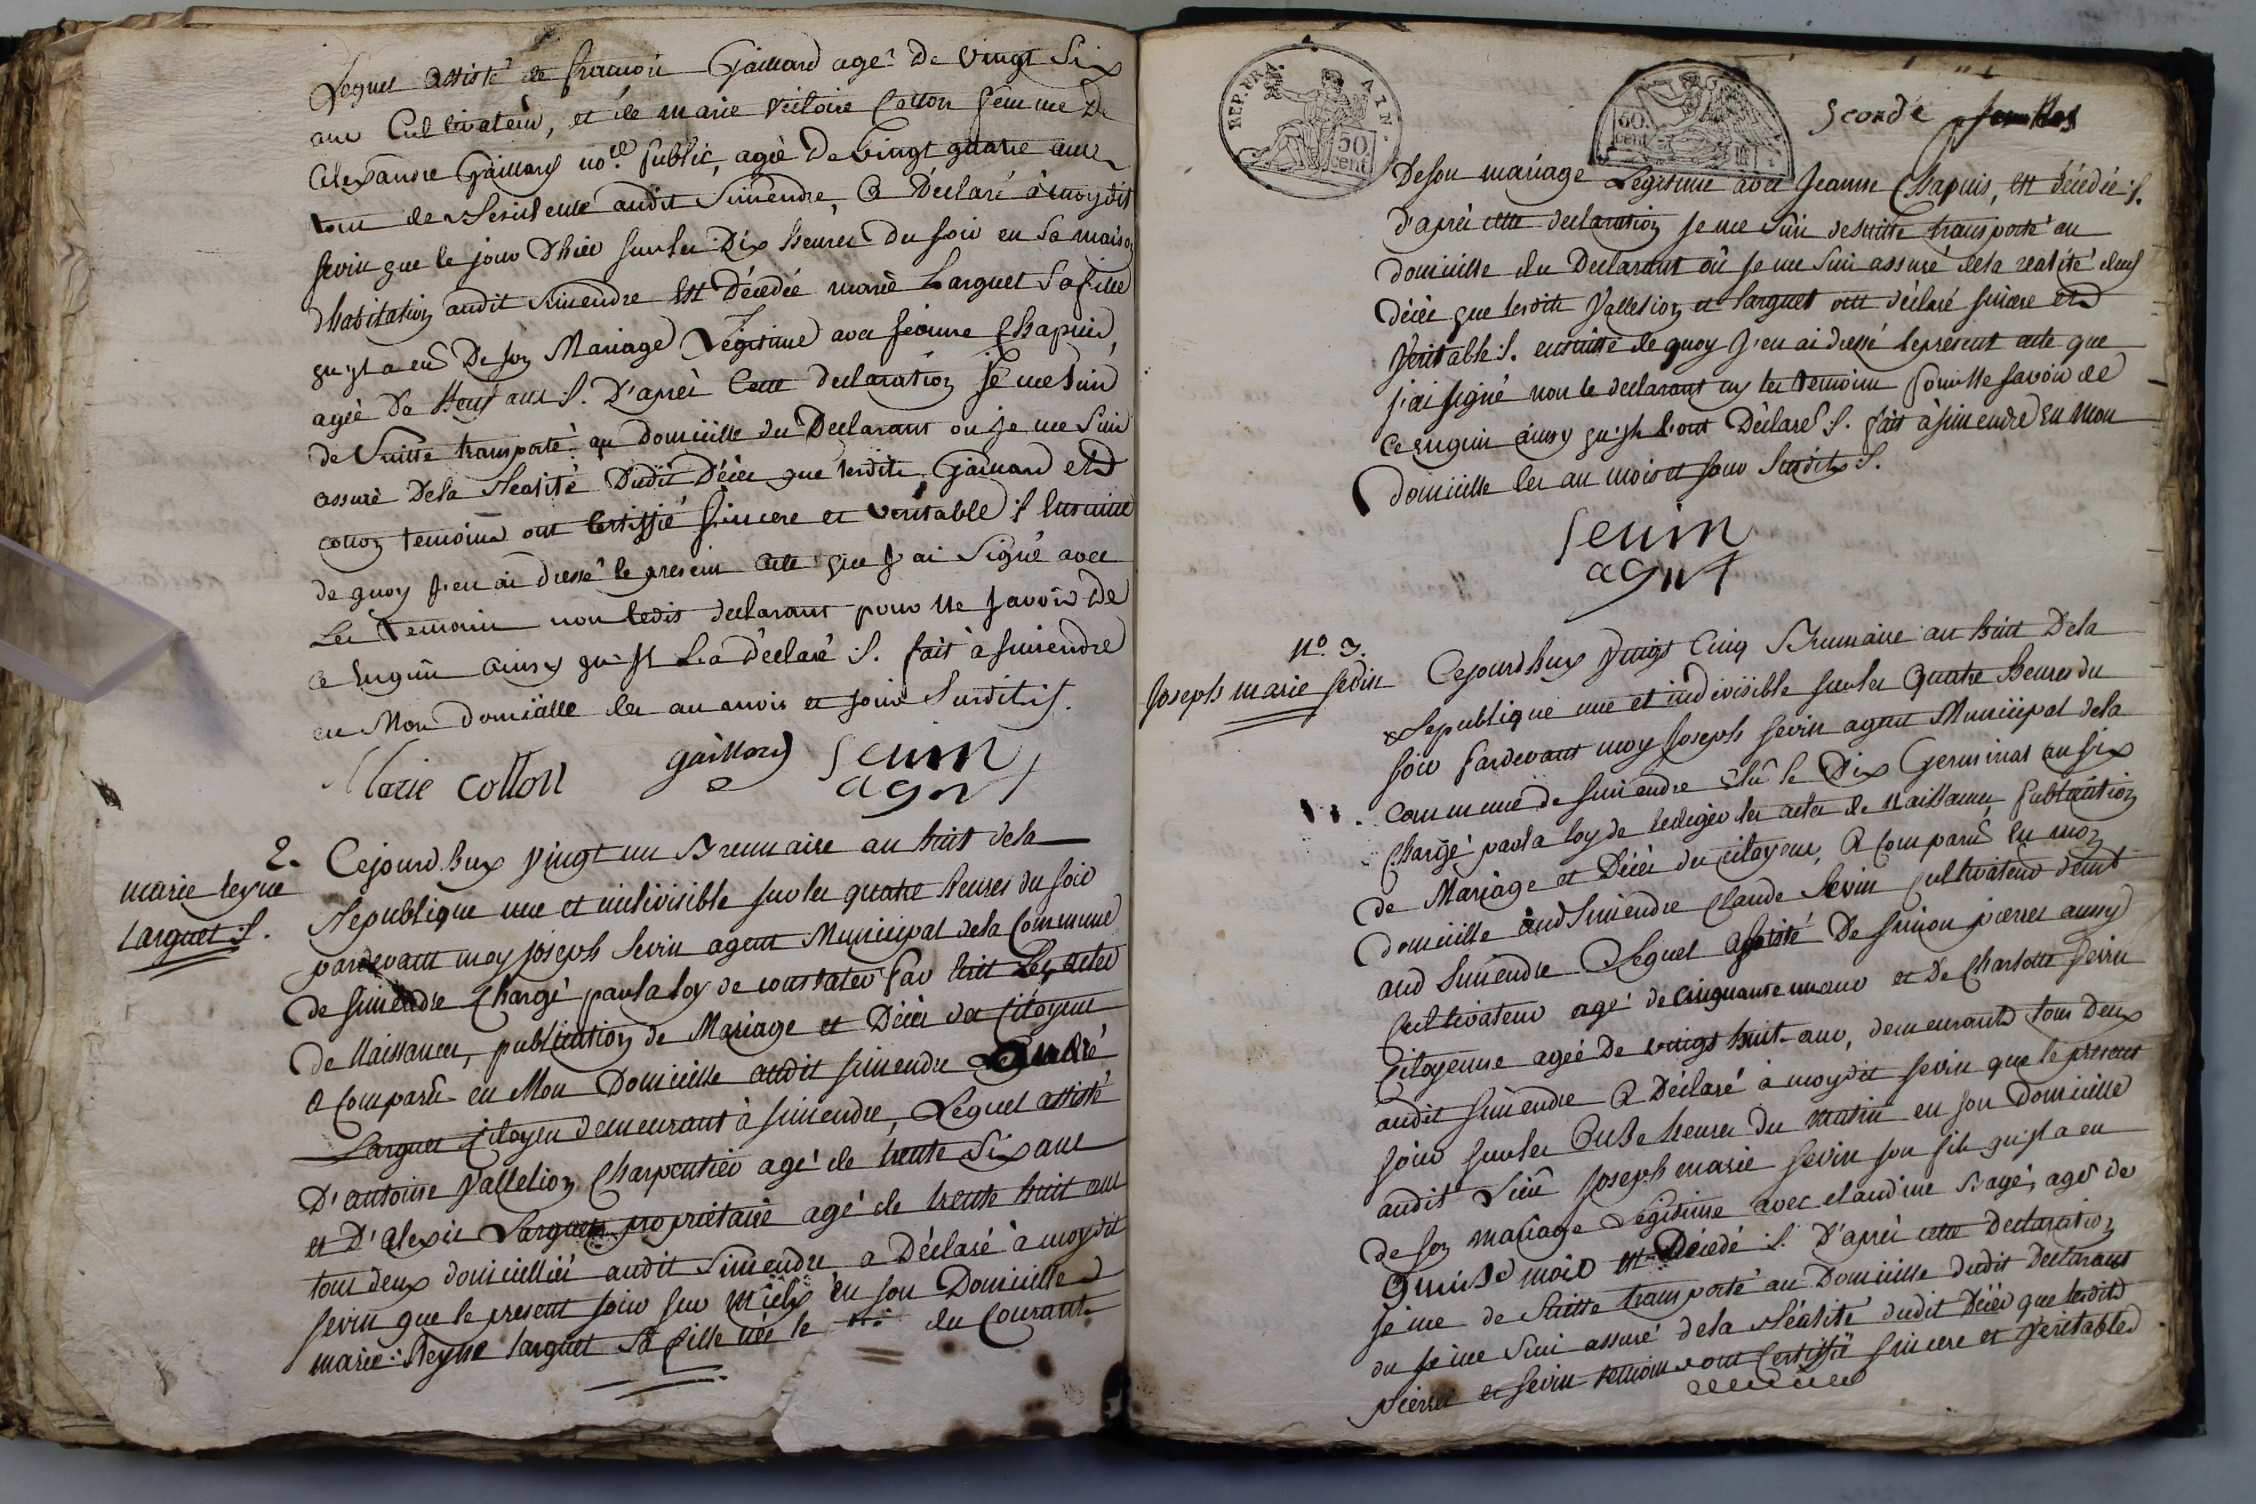 Lequel assisté de francois Gaillard agé de vingt Six
ans Cultivateur, et de marie victoire Cotton femme De
alexandre Gaillard no.re public, agée De vingt quatre ans
tous de Residence audit Simendre, a Déclaré à moydit
sevin que le jour D'hier sur les Dix heures Du soir en Sa maison
d'habitation audit simendre Est Décédée marie Larguet Sa fille
qu'il a eu De son Mariage Légitime avec jeanne Chapuis,
agée De Neuf ans :/. D'après Cette declaration Je me suis
de Suitte transporté au domicille du Declarant ou je me Suis
assuré Dela Réalité Dudit Décès que lesdits Gaillard et
cotton temoins ont Certiffié Sincere et véritable :/. Ensuitte
de quoy J'en ai dressé le present acte que J'ai Signé avec
Les temoins non ledit declarant pour Ne savoir De
ce Enquis Ainsy qu'il L'a Déclaré :/. fait à simendre
en Mon domicille les an mois et jour Susdits :/.
Marie cotton gaillard sevin
agent
2. Cejourd'huy vingt un Brumaire an huit dela
marie reyne
Larguet :/.
Republique une et indivisible sur les quatre heures du soir
pardevant moy joseph sevin agent Municipal dela Commune
de simendre Chargé par la loy de constater Par Ecrit Les actes
de Naissances, publication de Mariage et Décès des Citoyens
a Comparu en Mon Domicille audit simendre
Larguet Citoyen demeurant à simendre, Lequel assisté
D'antoine valletion Charpentier agé de trente Six ans
et D'alexis Larguet propriétaire agé de trente huit ans
tous deux domicilliés audit Simendre a Déclaré à moydit
sevin que le present jour sur en son Domicille
marie Reyne larguet Sa fille née le du Courant
seconde
De son mariage Légitime avec Jeanne Chapuis, est décédée :/.
d'après cette declaration je me suis de suitte transporté au
domicille du Declarant où je me suis assuré dela réalité dud
décès que lesdits Valletion et larguet ont déclaré sincere et
véritable :/. ensuitte de quoy J'en ai dressé le present acte que
j'ai signé non le declarant ny les temoins pour Ne savoir de
ce enquis ainsy qu'ils l'ont Déclaré :/. fait à simendre En Mon
Domicille les an mois et jour Susdits :/.
sevin
agent
No. 3.
Joseph marie sevin
Cejourdhuy vingt Cinq Brumaire an huit Dela
Republique une et indivisible sur les Quatre heures du
soir pardevant moy Joseph sevin agent Municipal dela
Commune de simendre Elû le Dix Germinal an six
Chargé par la loy de rediger les actes de Naissances, publication
de Mariage et Décès des citoyens, a Comparu En mon
domicille aud simendre Claude Sevin Cultivateur demt
aud simendre Lequel assisté De simon pierre aussy
Cultivateur agé de Cinquante un ans et De Charlotte Sevin
Citoyenne agée De vingt huit ans, demeurants tous deux
audit simendre a Déclaré à moydit sevin que le present
jour sur les Onze heures du matin en son Domicille
audit Lieu Joseph marie sevin son fils qu'il a eu
de son mariage Légitime avec claudine Bagé, agé de
Quinze mois est Décédé :/. D'après cette Declaration
Je me de Suitte transporté au Domicille dudit Declarant
ou Je me Suis assuré dela Réalité dudit Décès que lesdits
pierre et sevin temoins ont Certiffié sincere et véritable